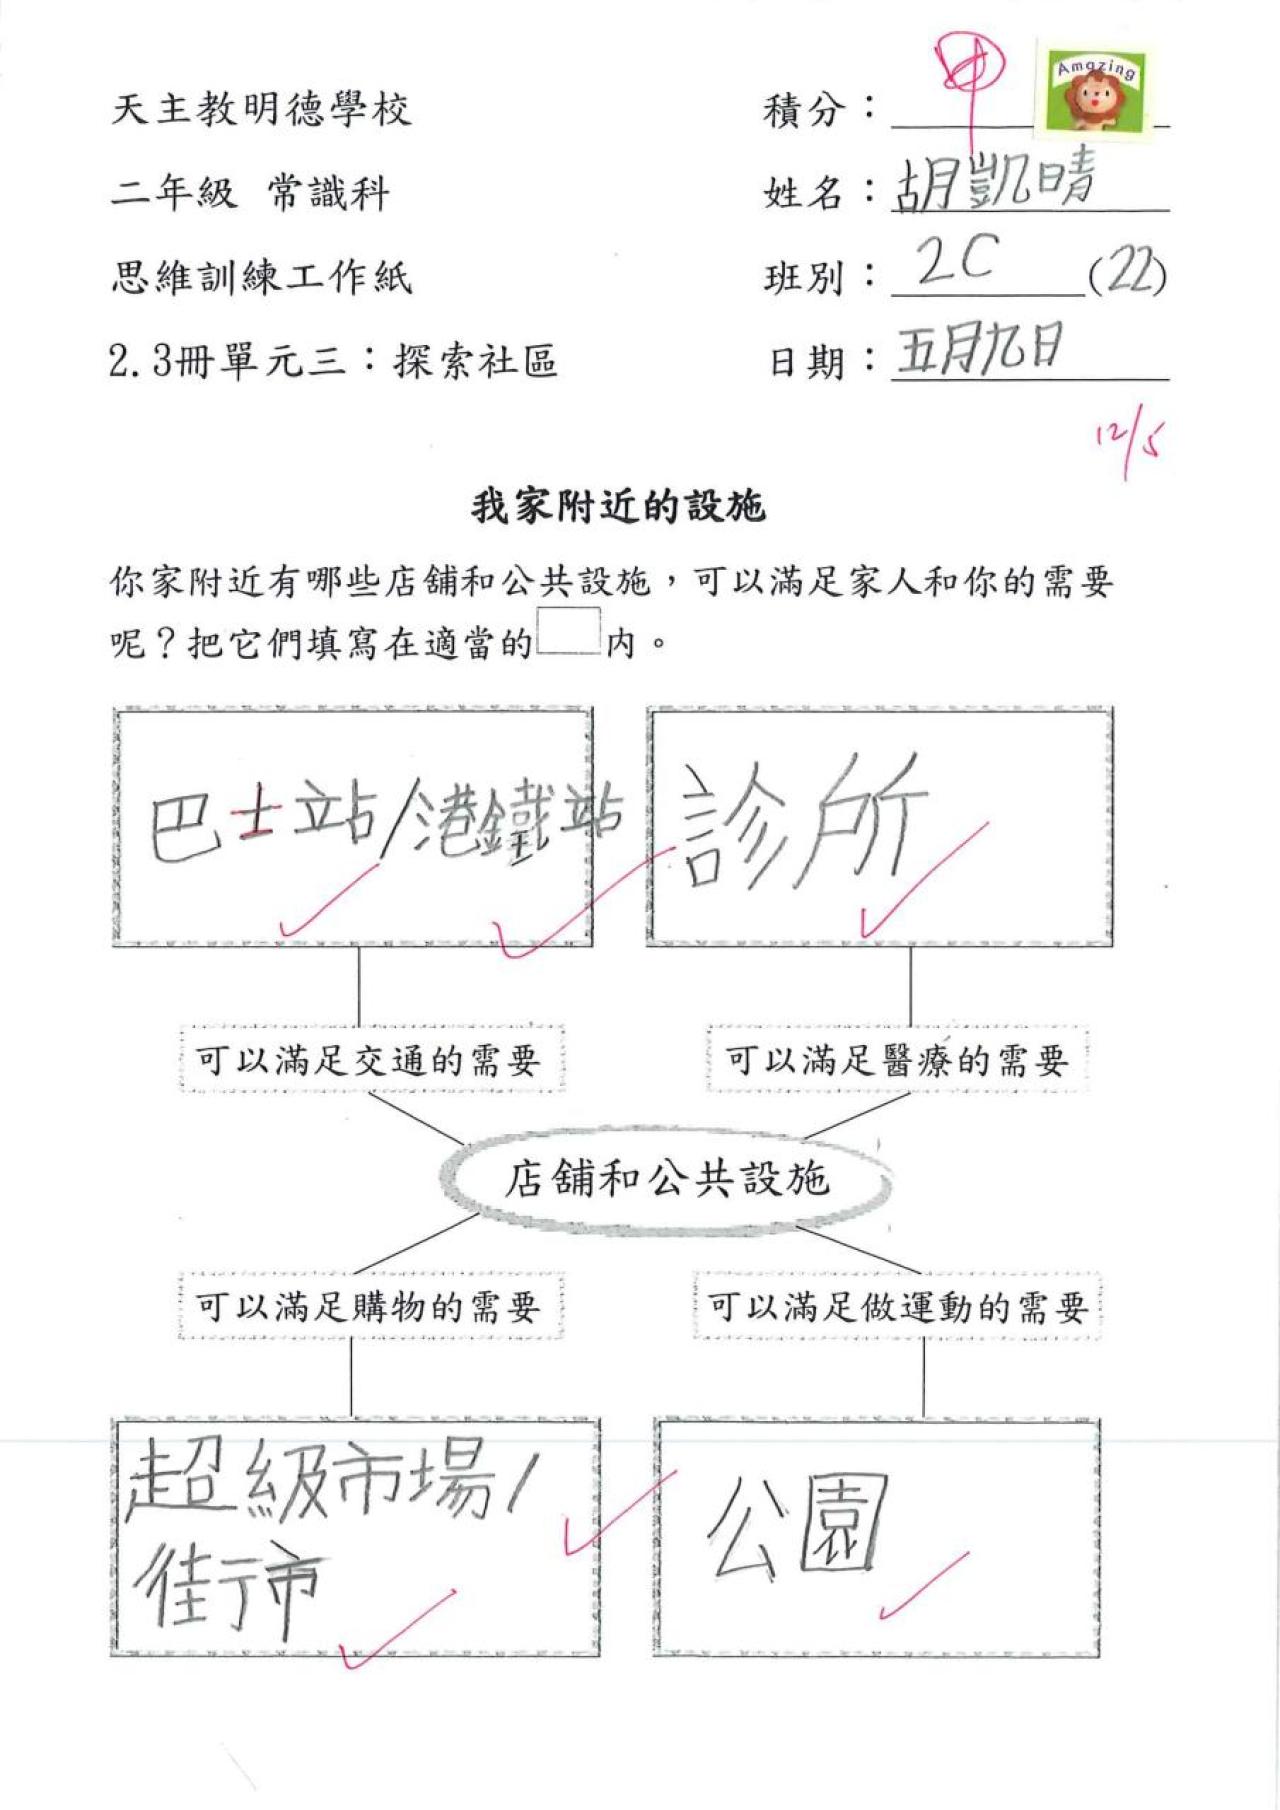 天主教明德學校
積分：甲
Amazing
二年級 常識科
姓名：胡凱晴
思維訓練工作紙
班別：2C (22)
2.3冊單元三：探索社區
日期：五月九日
12/5
我家附近的設施
你家附近有哪些店舖和公共設施，可以滿足家人和你的需要
呢？把它們填寫在適當的內。
巴士站/港鐵站
診所
可以滿足交通的需要
可以滿足醫療的需要
店舖和公共設施
可以滿足購物的需要
可以滿足做運動的需要
超級市場/
街市
公園